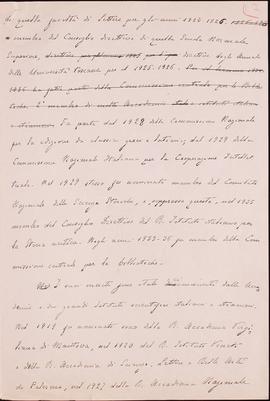 di quella facoltà di Lettere per gli anni 1923 1925.
e membro del Consiglio direttivo di quella Scuola Normale
Superiore, direttore degli Annali
delle Università Toscane pel 1925-1926.
ha fatto parte della Commissione centrale per le Biblio
teche. E' membro di molte Accademie
e straniere. Fa parte dal 1928 della Commissione Nazionale
per la edizione dei classici greci e latini, dal 1929 della
Commissione Nazionale Italiana per la Cooperazione Intellet
tuale. Nel 1929 stesso fu nominato membro del Comitato
Nazionale delle Scienze Storiche, e, soppresso questo, nel 1935
membro del Consiglio Direttivo del R. Istituto italiano per
la Storia antica. Negli anni 1933-35 fu membro della Com
missione centrale per le biblioteche.
I suoi meriti sono stati riconosciuti dalle Acca
demie e dai grandi Istituti scientifici italiani e stranieri.
Nel 1919 fu nominato socio della R. Accademia Virgi
liana di Mantova, nel 1920 del R. Istituto Veneto
e della R. Accademia di Scienze, Lettere e Belle Arti
di Palermo, nel 1927 della R. Accademia Nazionale